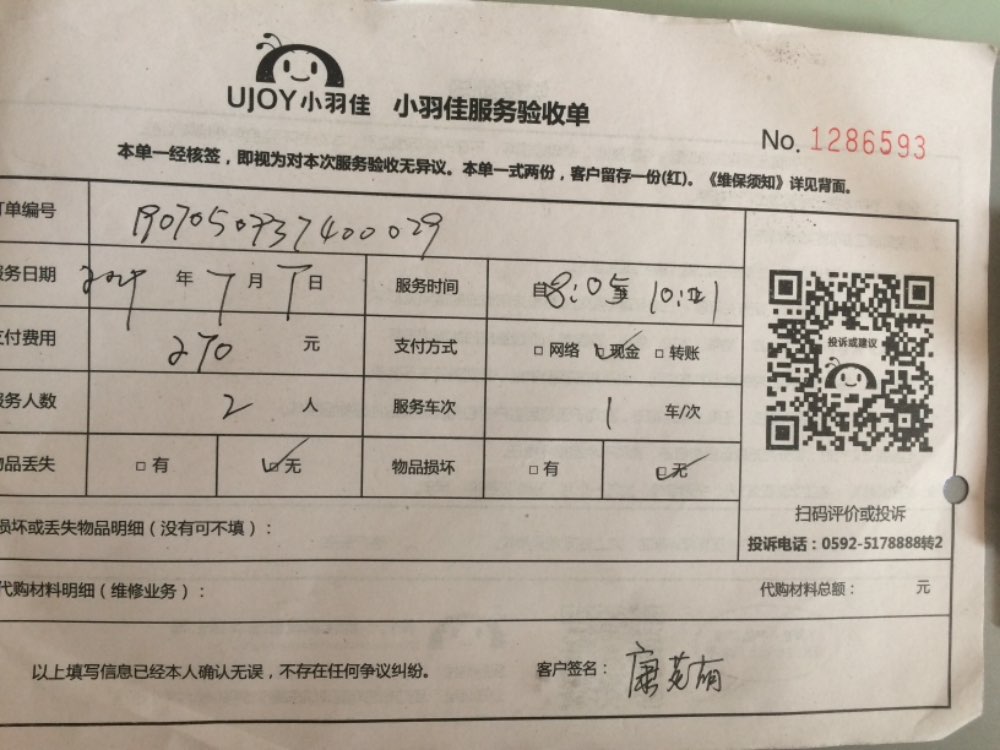 UJOY小羽佳 小羽佳服务验收单
No. 1286593
本单一经核签，即视为对本次服务验收无异议。本单一式两份，客户留存一份(红)。《维保须知》详见背面。
订单编号
服务日期 年 7 月 日 服务时间 自8:05至10:
支付费用 270 元 支付方式 □网络 □现金 □转账
服务人数 2 人 服务车次 1 车/次
物品丢失 □有 □无 物品损坏 □有 □无
投诉或建议
扫码评价或投诉
投诉电话：0592-5178888转2
损坏或丢失物品明细（没有可不填）：
代购材料明细（维修业务）： 代购材料总额： 元
以上填写信息已经本人确认无误，不存在任何争议纠纷。 客户签名：康